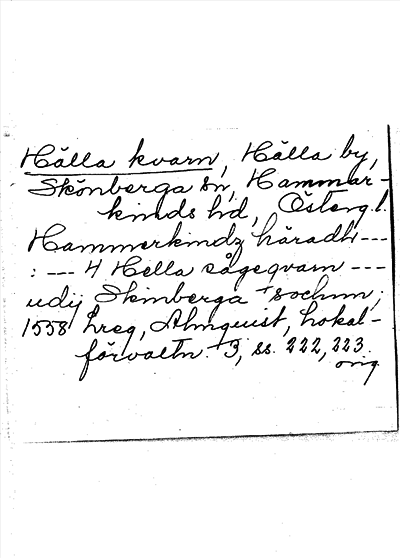 Hälla kvarn, Hälla by,
Skönberga sn, Hammar-
kinds hd, Östergl.
Hammerkindz häradh ---
: --- 4 Hella sågeqvarn ---
udij Skinberga sochnn;
1558 hreg, Almquist, Lokal-
förvaltn. 3, ss. 222, 223
orig.